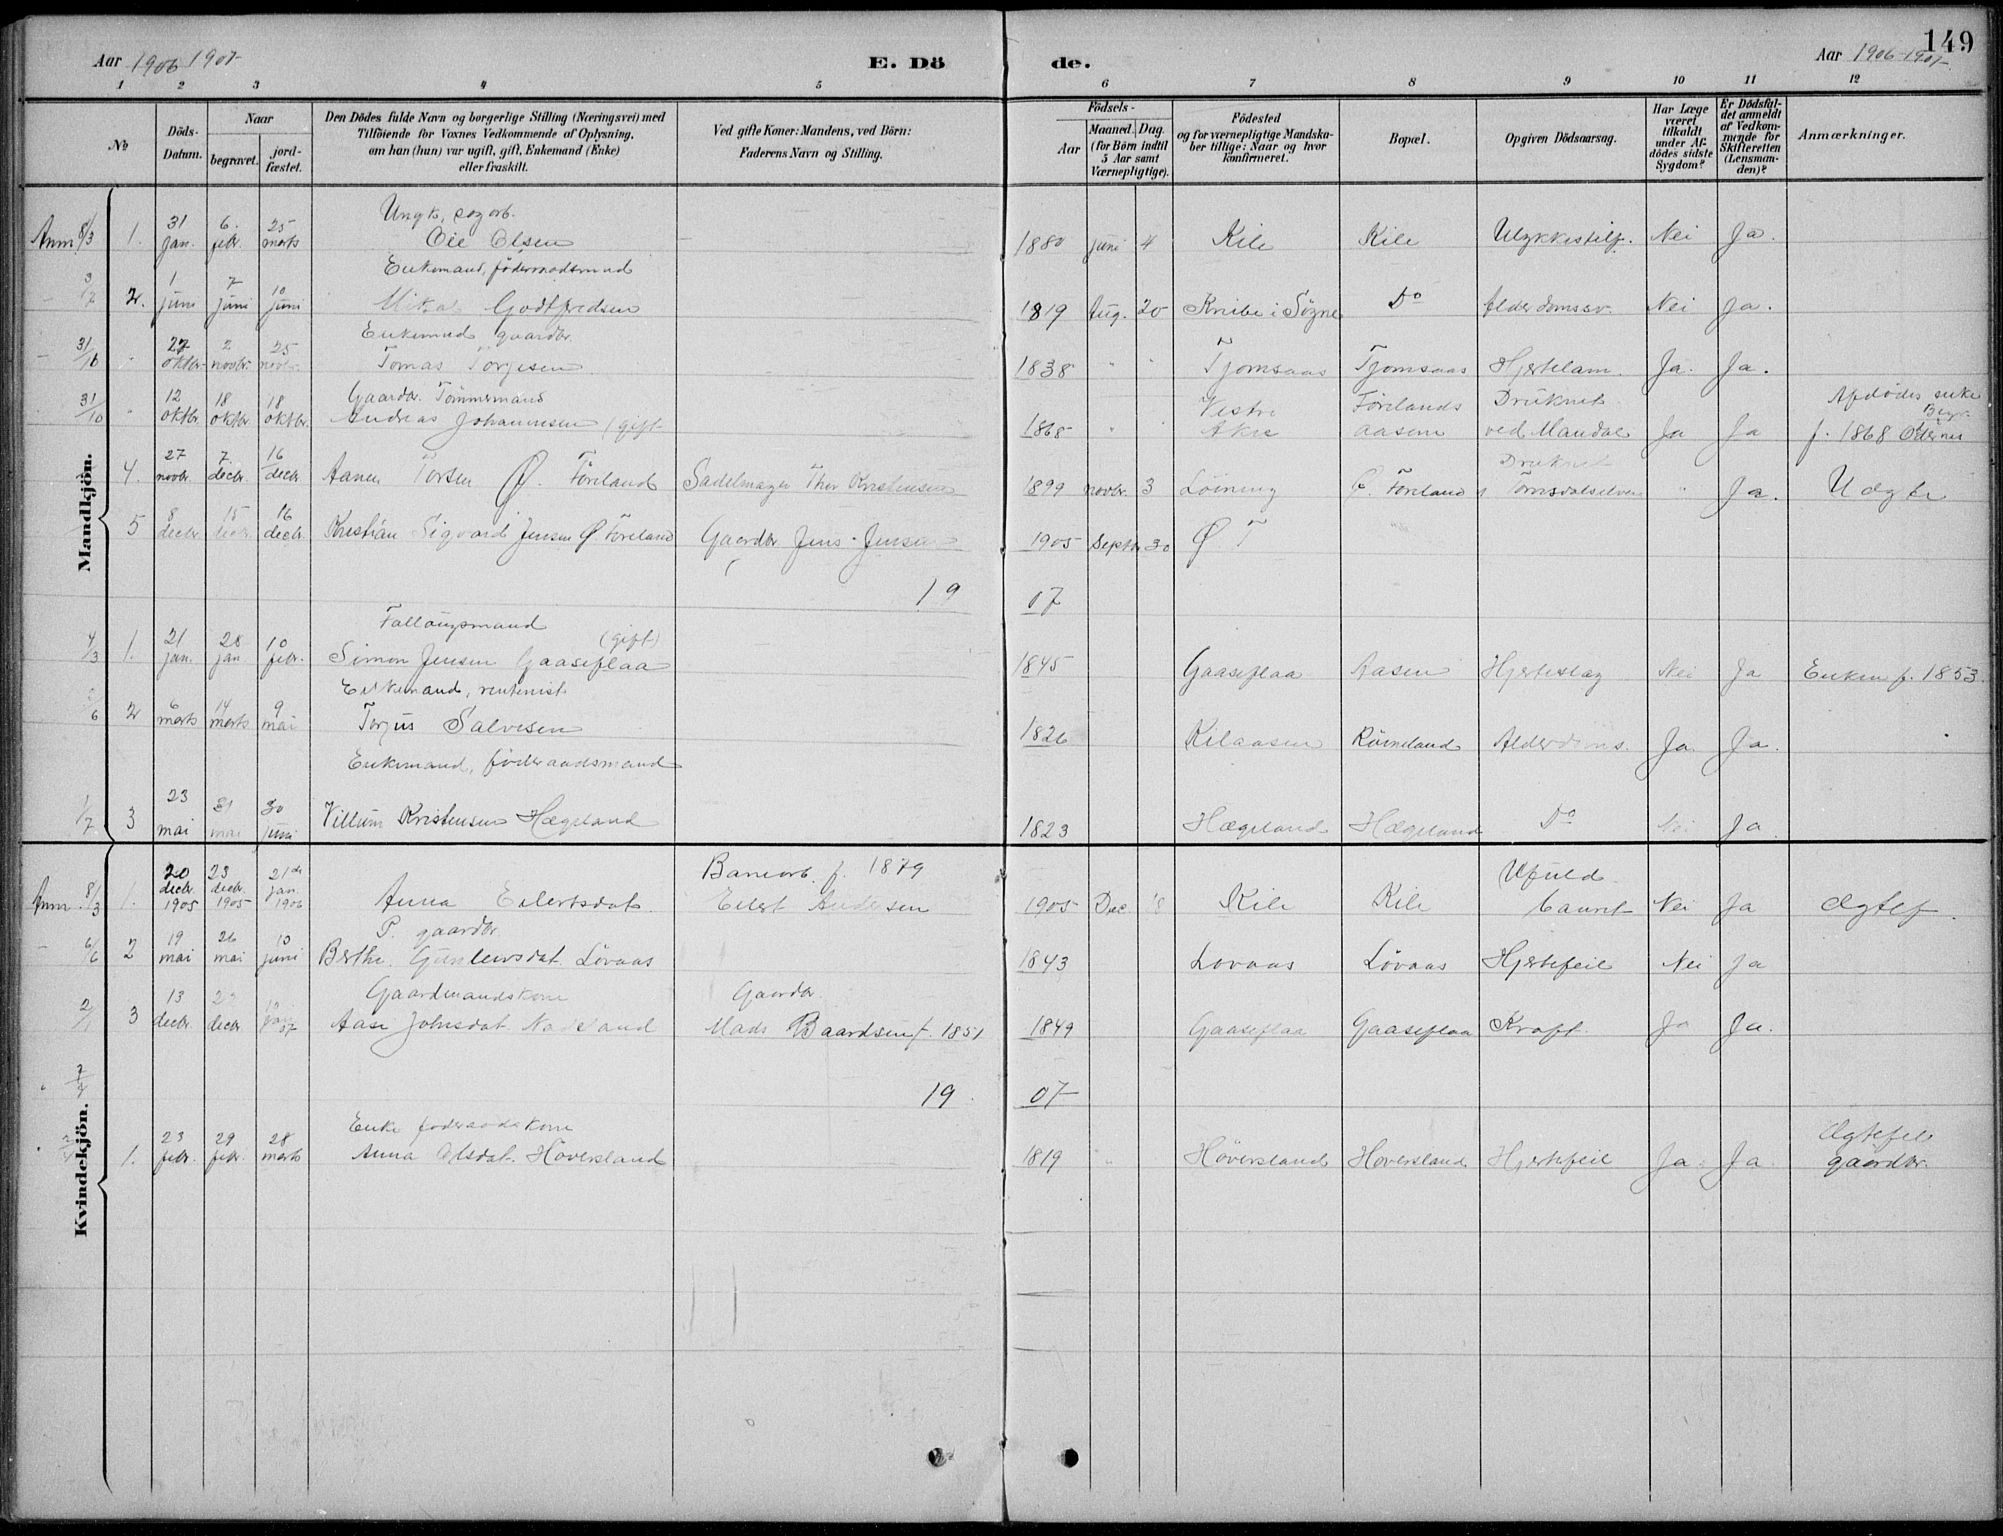 149
Aar 1906 1907
E. Dö
de.
Aar 1906-1907
1 2 3 4 5 6 7 8 9 10 11 12
No
Döds-Datum.
Naar
begravet.
jord-fæstet.
Den Dödes fulde Navn og borgerlige Stilling (Næringsvei) med
Tilföiende for Voxnes Vedkommende af Oplysning,
om han (hun) var ugift, gift, Enkemand (Enke)
eller fraskilt.
Ved gifte Koner: Mandens, ved Börn:
Faderens Navn og Stilling.
Födsels-
Aar
Maaned. Dag.
(for Börn indtil
5 Aar samt
Værnepligtige).
Födested
og for værnepligtige Mandska-
ber tillige: Naar og hvor
konfirmeret.
Bopæl.
Opgiven Dödsaarsag.
Har Læge
været
tilkaldt
under Af-
dödes sidste
Sygdom?
Er Dödsfal-
det anmeldt
af Vedkom-
mende for
Skifteretten
(Lensman-
den)?
Anmærkninger.
Mandkjön.
Ungk,
Anm. 8/3 1. 31 jan. 6. febr. 25 marts Ole Olsen 1880 juni 4 Kile Kile Ulykkestilf. Nei Ja.
Enkemand, föderaadsmand
3/7 2. 1 juni 7 juni 10 juni Mikal Godtfredsen 1819 Aug. 20 Knibe i Sögne Do Alderdomssv. Nei Ja.
Enkemand gaardbr.
31/10 " 27 oktbr. 2 novbr. 25 novbr. Tomas Torjesen 1838 " " Tjomsaas Tjomsaas Hjertelam. Ja. Ja.
Gaardbr. Tömmermand
31/10 " 12 oktbr. 18 oktbr. 18 oktbr. Andreas Johannesen (gift 1868 " " Vestre Förelands aasen Druknet ved Mandal Ja Ja Afdödes enke f. 1868
4. 27 novbr. 7. decbr. 16 decbr. Aanen Torsen Ø. Föreland Sadelmager Thor Kristensen 1899 novbr. 3 Løining Ø. Föreland Druknet " Ja. Uægte
5 8 decbr. 15 decbr. 16 decbr. Kristian Sigvard Jensen Ø. Föreland Gaardbr. Jens Jensen 1905 Septbr. 30 Ø. F
19 07
4/3 1. 21 jan. 28 jan 10 febr. (gift) Simon Jensen Gaaseflaa 1845 Gaaseflaa Aasen Hjerteslag Nei Ja Enken f. 1853
Enkemand, rentenist
6 2 6 marts 14 marts 9 mai Torjus Salvesen 1826 Kilaasen Röineland Alderdoms. Ja. Ja.
Enkemand, föderaadsmand
1/7 3 23 mai 31 mai 30 juni Villum Kristensen Hægeland 1823 Hægeland Hægeland Do Nei Ja.
Kvindekjön.
Anm. 8/3 1. 20 decbr. 1905 23 decbr. 1905 21de jan. 1906 Anna Eilertsdat. f. 1879 Eilert Andersen 1905 Dec. 18 Kile Kile Ufuld baaret Nei Ja Ægtef.
P. gaardbr.
6/6 2 19 mai 26 mai 10 juni Berthe Gunleivsdat. Lövaas 1843 Lovaas Lövaas Hjertefeil Nei Ja
Gaardmandskone Gaardbr.
2/1 3 13 decbr. decbr. 07 Aase Johnsdat. Mads Baardsen f. 1851 1849 Gaaseflaa Gaaseflaa Kræft. Ja Ja.
19 07
Enke föderaadskone
1. 23 febr. 29 febr. 28 marts Anna Olsdat. Höversland 1819 " Höversland Höversland Hjertefeil Ja. Ja. Ægtefel gaardbr.